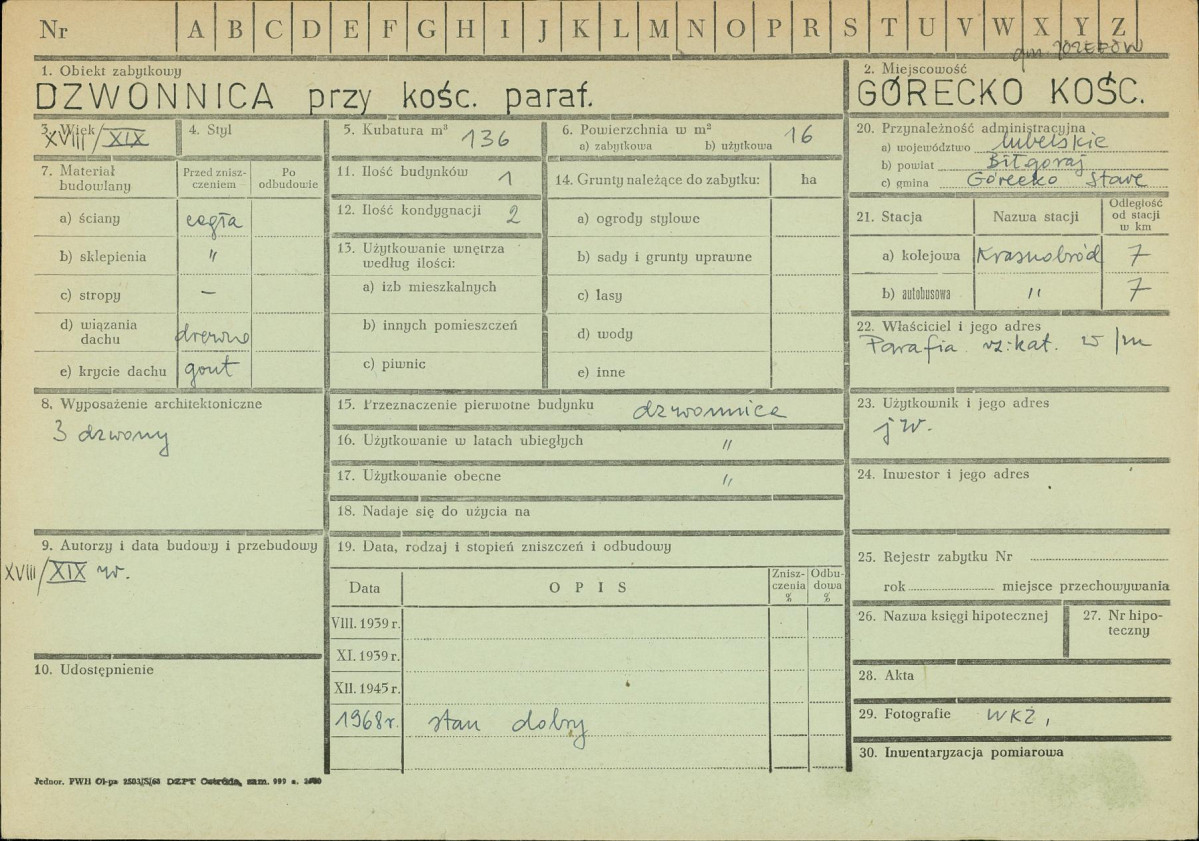 Nr A B C D E F G H I J K L M N O P R S T U V W X Y Z
gm. JÓZEFÓW
1. Obiekt zabytkowy
DZWONNICA przy kośc. paraf.
2. Miejscowość
GÓRECKO KOŚC.
3. Wiek
XVIII/XIX
4. Styl
5. Kubatura m³ 136
6. Powierzchnia w m²
a) zabytkowa b) użytkowa 16
7. Materiał budowlany
Przed zniszczeniem
Po odbudowie
a) ściany cegła
b) sklepienia "
c) stropy –
d) wiązania dachu drewno
e) krycie dachu gont
11. Ilość budynków 1
12. Ilość kondygnacji 2
13. Użytkowanie wnętrza według ilości:
a) izb mieszkalnych
b) innych pomieszczeń
c) piwnic
14. Grunty należące do zabytku: ha
a) ogrody stylowe
b) sady i grunty uprawne
c) lasy
d) wody
e) inne
20. Przynależność administracyjna
a) województwo lubelskie
b) powiat Biłgoraj
c) gmina Górecko Stare
21. Stacja
Nazwa stacji
Odległość od stacji w km
a) kolejowa Krasnobród 7
b) autobusowa " 7
22. Właściciel i jego adres
Parafia rz.kat. w/m
8. Wyposażenie architektoniczne
3 dzwony
15. Przeznaczenie pierwotne budynku dzwonnica
16. Użytkowanie w latach ubiegłych "
17. Użytkowanie obecne "
18. Nadaje się do użycia na
23. Użytkownik i jego adres
jw.
24. Inwestor i jego adres
9. Autorzy i data budowy i przebudowy
XVIII/XIX w.
10. Udostępnienie
19. Data, rodzaj i stopień zniszczeń i odbudowy
Data
OPIS
Zniszczenia %
Odbudowa %
VIII. 1939 r.
XI. 1939 r.
XII. 1945 r.
1968 r. stan dobry
25. Rejestr zabytku Nr
rok miejsce przechowywania
26. Nazwa księgi hipotecznej
27. Nr hipoteczny
28. Akta
29. Fotografie WKZ,
30. Inwentaryzacja pomiarowa
Jednor. PWH Ol-pa 2503/S/63 DZPT Ostróda, zam. 999 n.